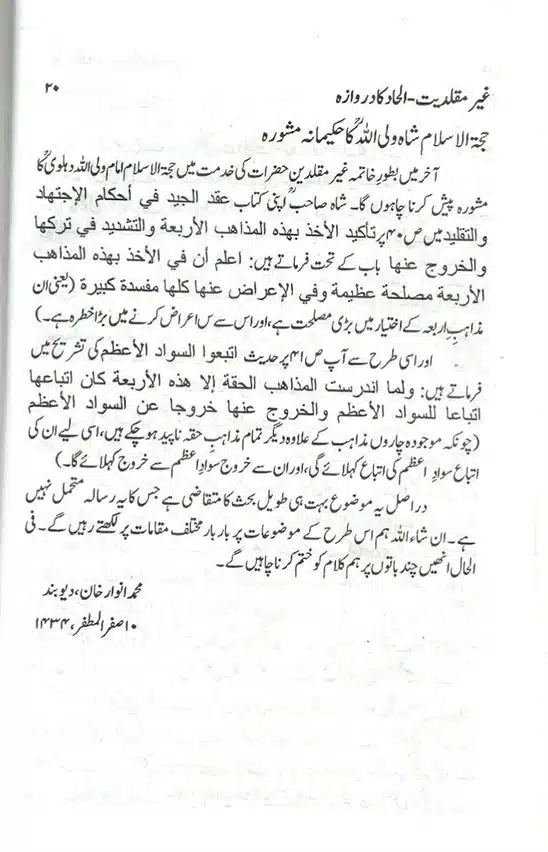 غیر مقلدیت-الحاد کا دروازہ ۲۰
حجۃ الاسلام شاہ ولی اللہؒ کا حکیمانہ مشورہ
آخر میں بطورِ خاتمہ غیر مقلدین حضرات کی خدمت میں حجۃ الاسلام امام ولی اللہ دہلویؒ کا
مشورہ پیش کرنا چاہوں گا۔ شاہ صاحبؒ اپنی کتاب عقد الجيد في أحكام الإجتهاد
والتقليد میں ص ۴۰ پر تأكيد الأخذ بهذه المذاهب الأربعة والتشديد في تركها
والخروج عنها باب کے تحت فرماتے ہیں: اعلم أن في الأخذ بهذه المذاهب
الأربعة مصلحة عظيمة وفي الإعراض عنها كلها مفسدة كبيرة (یعنی ان
مذاہبِ اربعہ کے اختیار میں بڑی مصلحت ہے، اور اس سے س اعراض کرنے میں بڑا خطرہ ہے۔)
اور اسی طرح سے آپ ص ۴۱ پر حدیث اتبعوا السواد الأعظم کی تشریح میں
فرماتے ہیں: ولما اندرست المذاهب الحقة إلا هذه الأربعة كان اتباعها
اتباعا للسواد الأعظم والخروج عنها خروجا عن السواد الأعظم
(چونکہ موجودہ چاروں مذاہب کے علاوہ دیگر تمام مذاہبِ حقہ ناپید ہو چکے ہیں، اسی لیے ان کی
اتباع سوادِ اعظم کی اتباع کہلائے گی، اور ان سے خروج سوادِ اعظم سے خروج کہلائے گا۔)
دراصل یہ موضوع بہت ہی طویل بحث کا متقاضی ہے جس کا یہ رسالہ متحمل نہیں
ہے۔ ان شاء اللہ ہم اس طرح کے موضوعات پر بار بار مختلف مقامات پر لکھتے رہیں گے۔ فی
الحال انھیں چند باتوں پر ہم کلام کو ختم کرنا چاہیں گے۔
محمد انوار خان، دیوبند
۱۰ صفر المظفر، ۱۴۳۴